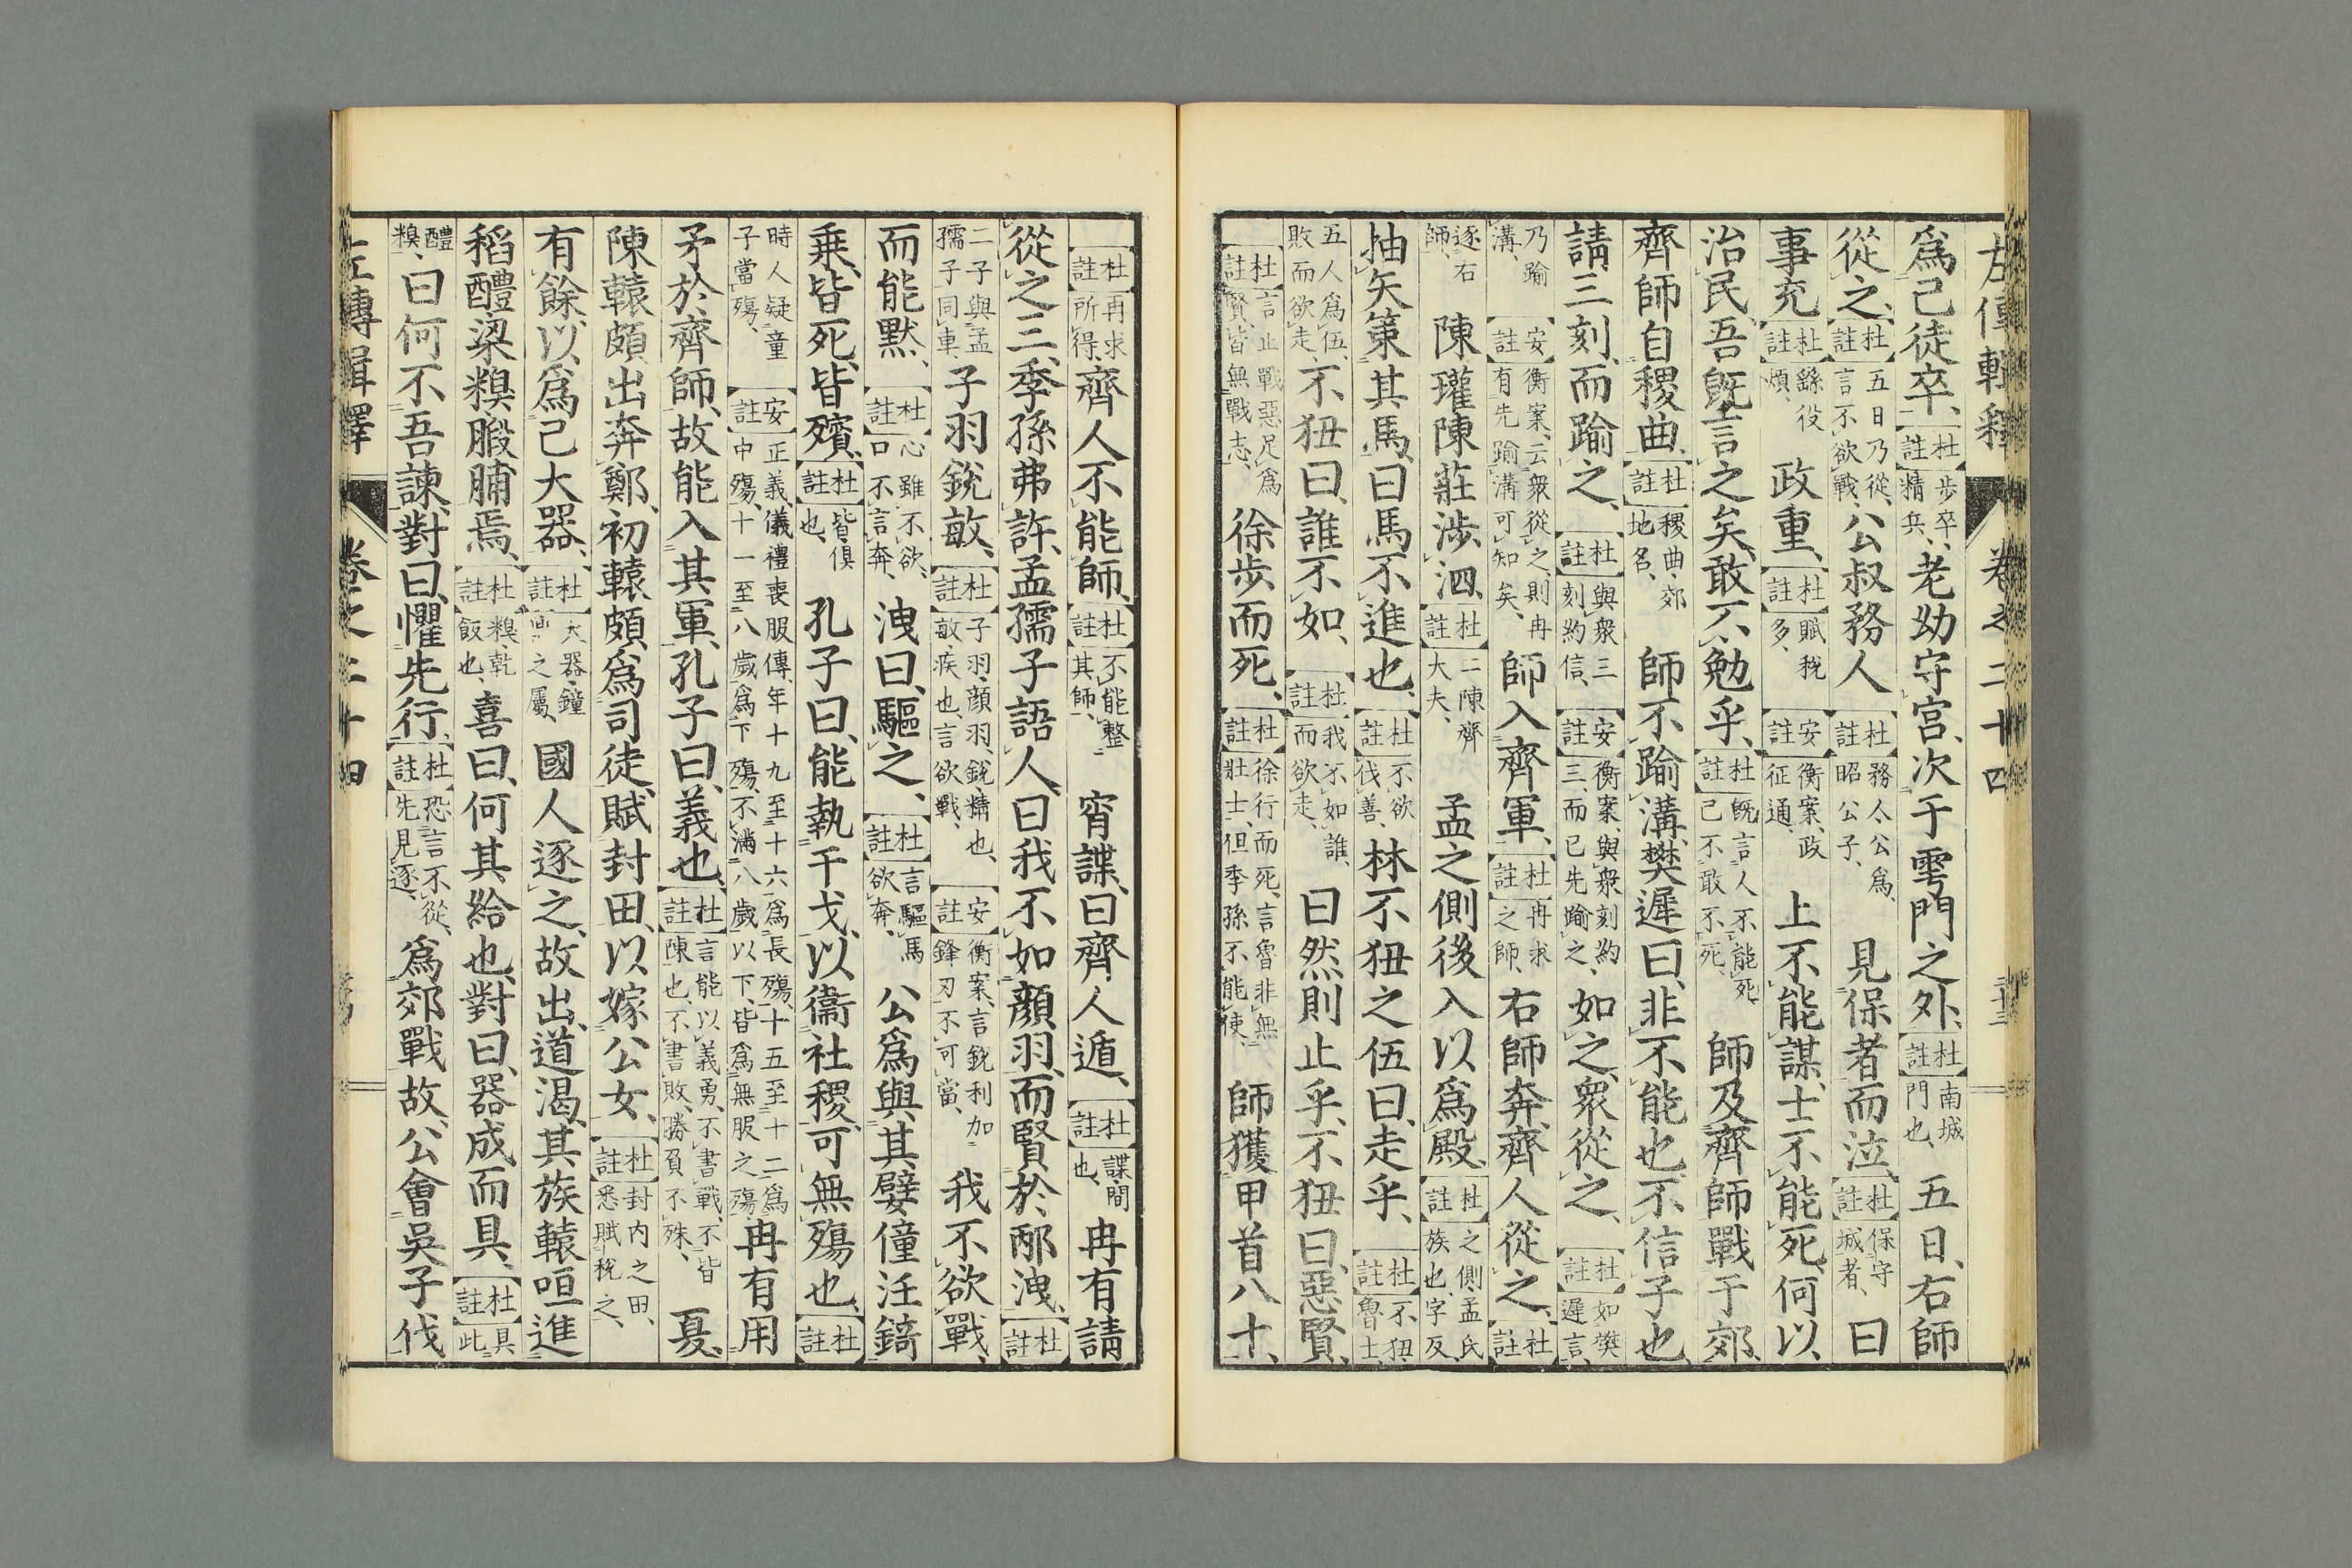 左傳輯釋　卷之二十四
爲己徒卒、杜註步卒、精兵、老幼守宮、次于雩門之外、杜註南城門也、五日、右師
從之、杜註五日乃從、言不欲戰、公叔務人杜註務人公爲、昭公子、見保者而泣杜註保守城者、曰
事充杜註繇役煩、政重、杜註賦稅多、安註衡案、政征通、上不能謀、士不能死、何以
治民、吾旣言之矣、敢不勉乎、杜註旣言人不能死、己不敢不死、師及齊師戰于郊、
齊師自稷曲、杜註稷曲、郊地名、師不踰溝、樊遲曰、非不能也、不信子也、
請三刻而踰之、杜註與衆三刻約信、安註衡案、與衆刻約三、而已先踰之、如之、衆從之、杜註如樊遲言、
乃踰溝、安註衡案、云衆從之、則冉有先踰溝可知矣、師入齊軍、杜註冉求之師、右師奔、齊人從之、杜註
逐右師、陳瓘陳莊涉泗、杜註二陳齊大夫、孟之側後入以爲殿、杜註之側、孟氏族也、字反、
抽矢策其馬、曰馬不進也、杜註不欲伐善、林不狃之伍曰、走乎、杜註不狃、魯士、
五人爲伍、敗而欲走、不狃曰、誰不如、杜註我不如誰、而欲走、曰然則止乎、不狃曰、惡賢、
杜註言止戰惡足爲賢、皆無戰志、徐步而死、杜註徐行而死、言魯非無壯士、但季孫不能使、師獲甲首八十、
杜註冉求所得、齊人不能師、杜註不能整其師、宵諜、曰齊人遁、杜註諜、間也、冉有請
從之三、季孫弗許、孟孺子語人、曰我不如顔羽、而賢於邴洩、杜註
二子與孟孺子同車、子羽銳敏、杜註子羽、顔羽、銳、精也、敏、疾也、言欲戰、安註衡案、言銳利加鋒刃不可當、我不欲戰、
而能默、杜註心雖不欲、口不言奔、洩曰、驅之、杜註言驅馬欲奔、公爲與其嬖僮汪錡
乘、皆死、皆殯、杜註皆、俱也、孔子曰、能執干戈、以衞社稷、可無殤也、杜註
時人疑童子當殤、安註正義、儀禮喪服傳、年十九至十六爲長殤、十五至十二爲中殤、十一至八歲爲下殤、不滿八歲以下、皆爲無服之殤、冉有用
矛於齊師、故能入其軍、孔子曰、義也、杜註言能以義勇、不書戰、不皆陳也、不書敗、勝負不殊、夏、
陳轅頗出奔鄭、初轅頗爲司徒、賦封田、以嫁公女、杜註封内之田、悉賦稅之、
有餘、以爲己大器、杜註大器、鐘之屬、國人逐之、故出、道渴、其族轅咺進
稻醴粱糗腶脯焉、杜註糗、乾飯也、喜曰、何其給也、對曰、器成而具、杜註具此
醴糗、曰何不吾諫、對曰、懼先行、杜註恐言不從、先見逐、爲郊戰故、公會吳子伐
左傳輯釋　卷之二十四